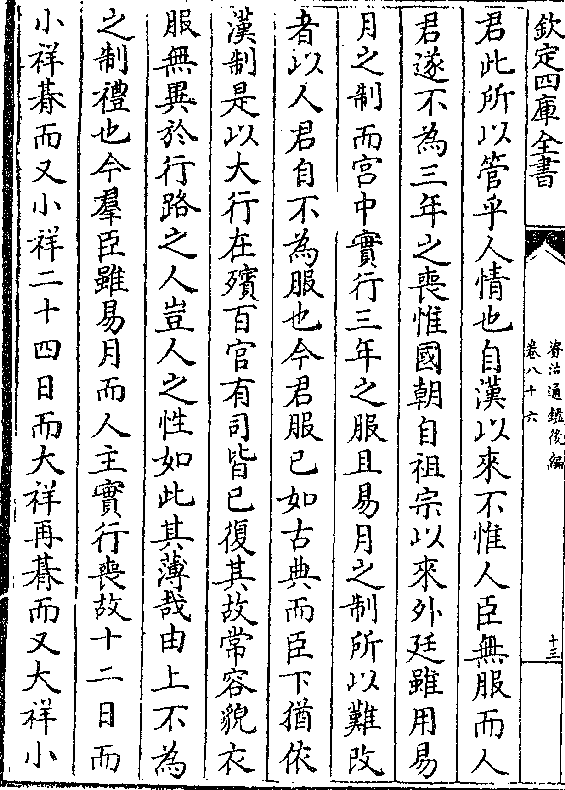 欽定四庫全書
資治通鑑後編
卷八十六
十三
君此所以管乎人情也自漢以來不惟人臣無服而人
君遂不為三年之喪惟國朝自祖宗以來外廷雖用易
月之制而宫中實行三年之服且易月之制所以難改
者以人君自不為服也今君服已如古典而臣下猶依
漢制是以大行在殯百官有司皆已復其故常容貌衣
服無異於行路之人豈人之性如此其薄哉由上不為
之制禮也今羣臣雖易月而人主實行喪故十二日而
小祥朞而又小祥二十四日而大祥再朞而又大祥小